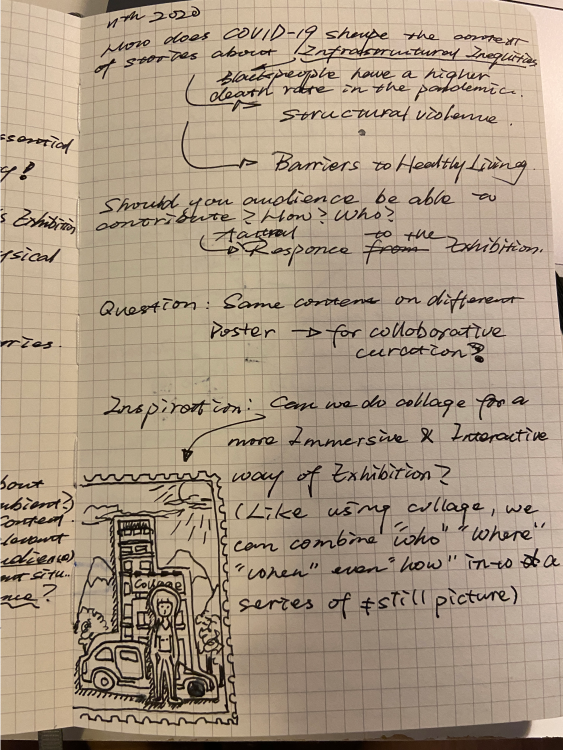 nth 2020
How does COVID-19 shape the context
of stories about Infrastructural Inequities
Black people have a higher
death rate in the pandemic.
structural violence.
Barriers to Healthy Living.
Should you audience be able to
contribute? How? Who?
to the
Responce from Exhibition.
Question: Same content on different
Poster → for collaborative
curation?
Inspiration: Can we do collage for a
more Immersive & Interactive
way of Exhibition?
(Like using collage, we
can combine "who" "where"
"when" even "how" into a
series of still picture)
Collage
ssential
y!
s Exhibition
sical
rries.
bout
mbient?)
levant
udience)
nt situ..
nce?